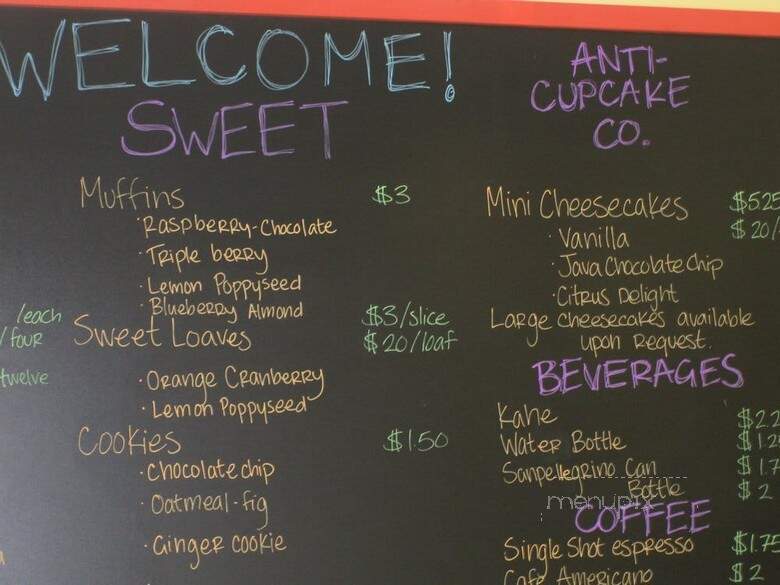 WELCOME!
SWEET
Muffins $3
·Raspberry-Chocolate
·Triple berry
·Lemon Poppyseed
·Blueberry Almond
/each
/four
twelve
Sweet Loaves $3/slice
$20/loaf
·Orange Cranberry
·Lemon Poppyseed
Cookies $1.50
·Chocolate chip
·Oatmeal-fig
·Ginger cookie
ANTI-
CUPCAKE
CO.
Mini Cheesecakes $525
$20/
·Vanilla
·Java Chocolate Chip
·Citrus Delight
Large cheesecakes available
upon Request.
BEVERAGES
Kahe $2.2
Water Bottle $1.2
Sanpellegrino Can $1.7
Bottle $2
menupix
COFFEE
Single Shot espresso $1.75
Cafe Americano $2